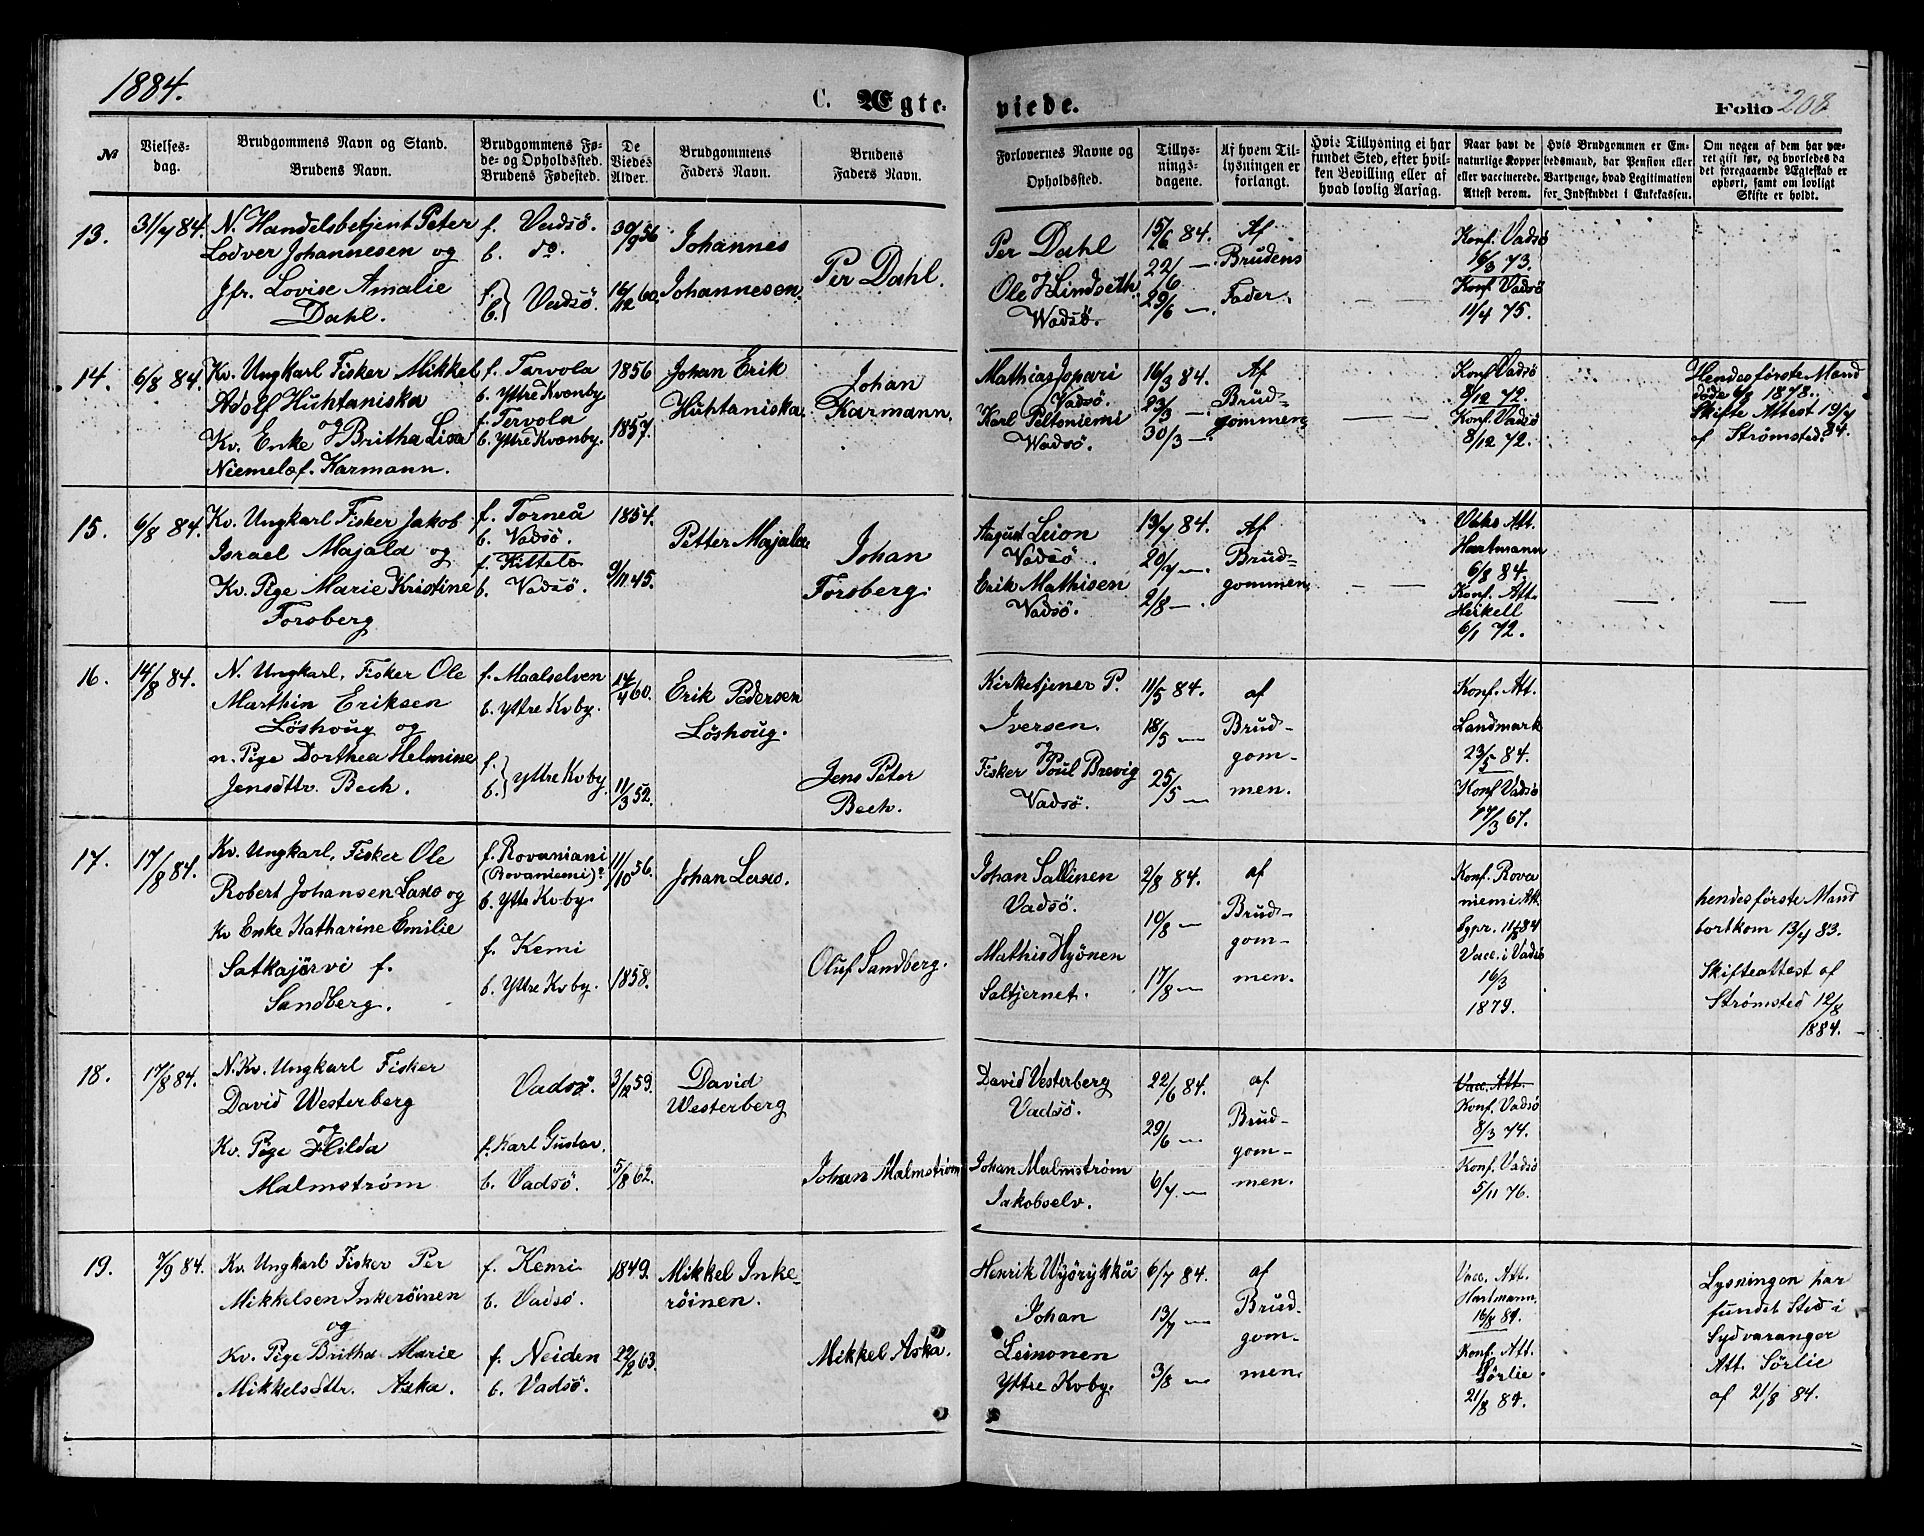 1884.
C. Ægte-
viede.
Folio 208
№
Vielses-
dag.
Brudgommens Navn og Stand.
Brudens Navn.
Brudgommens Fø-
de- og Opholdssted.
Brudens Fødested.
De
Viedes
Alder.
Brudgommens
Faders Navn.
Brudens
Faders Navn.
Forlovernes Navne og
Opholdssted.
Tillys-
nings-
dagene.
Af hvem Til-
lysningen er
forlangt.
Hvis Tillysning ei har
fundet Sted, efter hvil-
ken Bevilling eller af
hvad lovlig Aarsag.
Naar havt de
naturlige Kopper
eller vaccinerede.
Attest derom.
Hvis Brudgommen er Em-
bedsmand, har Pension eller
Vartpenge, hvad Legitimation
for Indskuddet i Enkekassen.
Om nogen af dem har væ-
ret gift før, og hvorledes da
det foregaaende Ægteskab er
ophørt, samt om lovligt
Skifte er holdt.
13.
31/7 84.
N. Handelsbetjent Peter
Lodver Johannesen og
Jfr. Lovise Amalie
Dahl.
f. Vadsö.
b. do.
f. } Vadsö.
b.
30/9 56
16/12 60.
Johannes
Johannesen.
Per Dahl.
Per Dahl
og
Ole Lindseth
Wadsö.
15/6 84.
22/6 —
29/6 —
Af
Brudens
Fader.
— —
Konf. Vadsö
16/3 73.
Konf Vadsö
11/4 75.
14.
6/8 84.
Kv. Ungkarl Fisker Mikkel
Adolf Huhtaniska
og
Kv. Enke Britha Lisa
Niemela f. Karmann.
f. Tarvola
b. Yttre Kvænby
f. Tervola
b. Yttre Kvænby.
1856
1857.
Johan Erik
Huhtaniska.
Johan
Karmann.
Mathias Jopari
Vadsö.
Karl Peltoniemi
Wadsö.
16/3 84.
23/3 —
30/3 —
Af
Brud-
gommen.
— —
Konf Vadsö
8/12 72.
Konf. Vadsö
8/12 72.
Hendes første Mand
döde 6/3 1878.
Skifte Attest 19/7
af Strømsted. 84.
15.
6/8 84.
Kv. Ungkarl Fisker Jakob
Israel Majala og
Kv. Pige Marie Kristine
Forsberg
f. Torneå
b. Vadsö.
f. Kittelæ
b. Vadsö.
1854.
9/11 45.
Petter Majala
Johan
Forsberg.
August Leion
Vadsö
Erik Mathisen
Vadsö.
13/7 84.
20/7 —.
2/8 —.
Af
Brud-
gommen.
— —
Vaks Att.
Hartmann
6/8 84.
Konf. Att.
Heikell
6/1 72.
—
—
16.
14/8 84.
N. Ungkarl, Fisker Ole
Marthin Eriksen
Löshoug og
n. Pige Dorthea Helmine
Jensdttr. Bech.
f. Maalselven
b. Yttre Kvby.
f. } Yttre Kvby
b.
14/4 60.
11/3 52.
Erik Pedersen
Löshoug.
Jens Peter
Bech.
Kirketjener P.
Iversen.
og
Fisker Poul Brevig
Vadsö.
11/5 84.
18/5 —
25/5 —
af
Brud-
gom-
men.
Konf. Att.
Landmark
23/5 84.
Konf Vadsö
17/3 67.
17.
17/8 84.
Kv. Ungkarl, Fisker Ole
Robert Johansen Laxo og
Kv Enke Katharine Emilie
Satkajärvi f.
Sandberg.
f. Rovaniani
(Rovaniemi)?
b. Yttre Kvby.
f. Kemi
b. Yttre Kvby.
11/10 56.
1858.
Johan Laxo.
Oluf Sandberg.
Johan Sallinen
Vadsö.
Mathis Hyönen
Saltjernet.
2/8 84.
10/8 —
17/8 —
af
Brud-
gom-
men.
Konf. Rova
niemi Att.
Sgpr. 11/8 84
Vacc. i Vadsö
16/3
1879.
hendes første Mand
bortkom 13/4 83.
Skifteattest af
Strømsted 12/8
1884.
18.
17/8 84.
N. Kv. Ungkarl Fisker
David Westerberg
og
Kv. Pige Hilda
Malmström
Vadsö.
f. Karl Gustav.
b. Vadsö.
3/12 59.
5/8 62.
David
Westerberg
Johan Malmström
David Vesterberg
Vadsö.
Johan Malmström
Jakobselv.
22/6 84.
29/6 —
6/7 —
af
Brud-
gom-
men.
Vacc. Att.
Konf. Vadsö
8/3 74.
Konf. Vadsö
5/11 76.
19.
7/9 84.
Kv. Ungkarl Fisker Per
Mikkelsen Inkeröinen
og
Kv. Pige Britha Marie
Mikkelsdttr. Aska.
f. Kemi
b. Vadsö.
f. Neiden
b. Vadsö.
1849.
22/2 63.
Mikkel Inke-
röinen.
Mikkel Aska.
Henrik Wyörykkä
Johan
Leinonen
Yttre Kvby.
6/7 84.
13/7 —
3/8 —
af
Brud-
gom-
men.
Vacc. Att.
Hartmann.
16/8 84.
Konf. Att.
Sörlie.
21/8 84.
Lysningen har
fundet Sted i
Sydvaranger
Att. Sörlie
af 21/8 84.